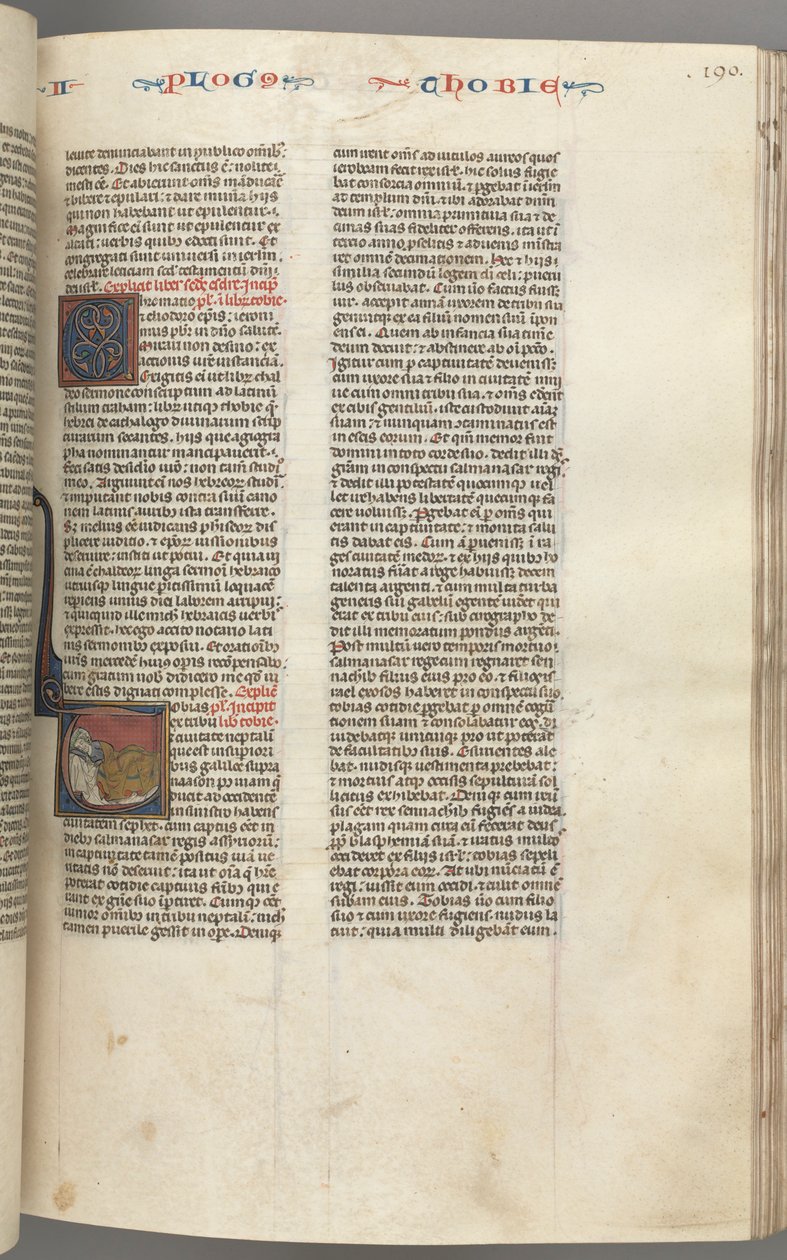 II PLOG9 THOBIE 190.
leuite denunciabant in publico omib;
dicentes. Dies hic sanctus ē: nolite
mesti eē. Et abierunt oms māducare
& bibere & epulari: & dare muna hijs
qui non habebant ut epulentur.
congregati sunt uniuersi in ierlm
celebrare leticiam scd testamentū dni
deus isrl. Explicit liber scds esdre. Incip
hromatio pl. i libr tobie.
& eliodoro epis: ieroni
mus pbr in dno salutē.
Mirari non desino: ex
actionis ure instanciā.
Exigitis ei ut libr chal
deo sermone conscriptum ad latinū
stilum traham: libr utiqz thobie q
hebrei de cathalogo diuinarum scrip
turarum secantes. hijs que agiogra
pha nominantur manciparerit.
feci satis desidio uro: non tam studi
meo. Arguunt ei nos hebreor studi
& imputant nobis contra suū cano
nem latinis auribz ista transferre.
Sz melius eē iudicans phiseor dis
plicere iuditio. & epor iussionibus
deseruire: institi ut potui. Et quia ui
cina ē chaldeor linga sermoni hebraico
utriusqz lingue peritissimū loquacē
repiens unius diei laborem arripui:
& quicquid ille michi hebraicis uerbis
expressit. hec ego accito notario lati
nis sermonibz exposui. Et orationibz
uris mercedē huius operis recōpensabo:
cum gratum nob didicero me qd iu
bere estis dignati complesse. Explic
obias pl. Incipit
ex tribu lib tobie.
& ciuitate neptali
que est in superiori
bus galilee supra
naason p uiam q
ducit ad occidente
in sinistro habens
ciuitatem sephet. cum captus cēt in
diebz salmanasar regis assyriorū:
in captiuitate tamē positus uiā ue
ritatis nō deseruit: ita ut oīa q hre
poterat cotidie captiuis frib; qui e
rant ex gn̄e suo īptiret. Cumqz cēt
iunior omibz in tribu neptali: nich
tamen puerile gessit in ope. Deniqz
cum irent oms ad uitulos aureos quos
ieroboam fecit rex isrl. hic solus fugie
bat consorcia omniū. & pgebat ī ierlm
ad templum dni. & ibi adorabat dnm
deum isrl. omnia primitiua sua & de
cimas suas fideliter offerens. ita ut ī
tercio anno pselitis & aduenis mistra
ret omnē decimationem. Hec & hijs
similia secundū legem di celi: pueru
lus obseruabat. Cum uo factus fuiss;
uir. accepit annā uxorem de tribu sua
genuitqz ex ea filiū nomen suū īpon
ens ei. Quem ab infancia sua time
deum docuit: & abstinere ab oi pcco.
Igitur cum p captiuitatē deueniss;
cum uxore sua & filio in ciuitatē nini
ue cum omni tribu sua. & oms ederēt
ex cibis gentiliū. iste custodiuit aīaz
suam & nunquam ctaminatus est
in escis eorum. Et qm memor fuit
domini in toto corde suo. dedit illi ds
gram in conspectu salmanasar regi
& dedit illi potestatē quocumqz uel
let ire habens libertatē quecumqz fa
cere uoluiss;. Pgebat ei p oms qui
erant in captiuitate: & monita salu
tis dabat eis. Cum a pueniss; ī ra
ges ciuitatē medor. & ex hijs quibz ho
noratus fuat a rege habuiss; decem
talenta argenti. & cum multa turba
generis sui gabelū egentē uidet qui
erat ex tribu eius: sub cirographo de
dit illi memoratum pondus argēti.
Post multū uero temporis mortuo
salmanasar rege cum regnaret sen
nachib filius eius pro eo. & filios is
rael exosos haberet in conspectu suo.
tobias cotidie pgebat p omnē cogna
tionem suam & consolabatur eos. di
uidebatqz unicuiqz pro ut poterat
de facultatibz suis. Esurientes ale
bat. nudisqz uestimenta prebebat:
& mortuis atqz occisis sepulturā sol
licitus exhibebat. Deniqz cum reu
sus cēt rex sennachib fugiēs a iudea
plagam quam circa eū fecerat deus
ppt blasphemiā suā. & iratus multos
occideret ex filijs isrl: tobias sepeli
ebat corpora eor. At ubi nūciatū ē
regi. iussit eum occidi. & tulit omnē
subam eius. Tobias uo cum filio
suo & cum uxore fugiens. nudus la
tuit: quia multi diligebāt eum.